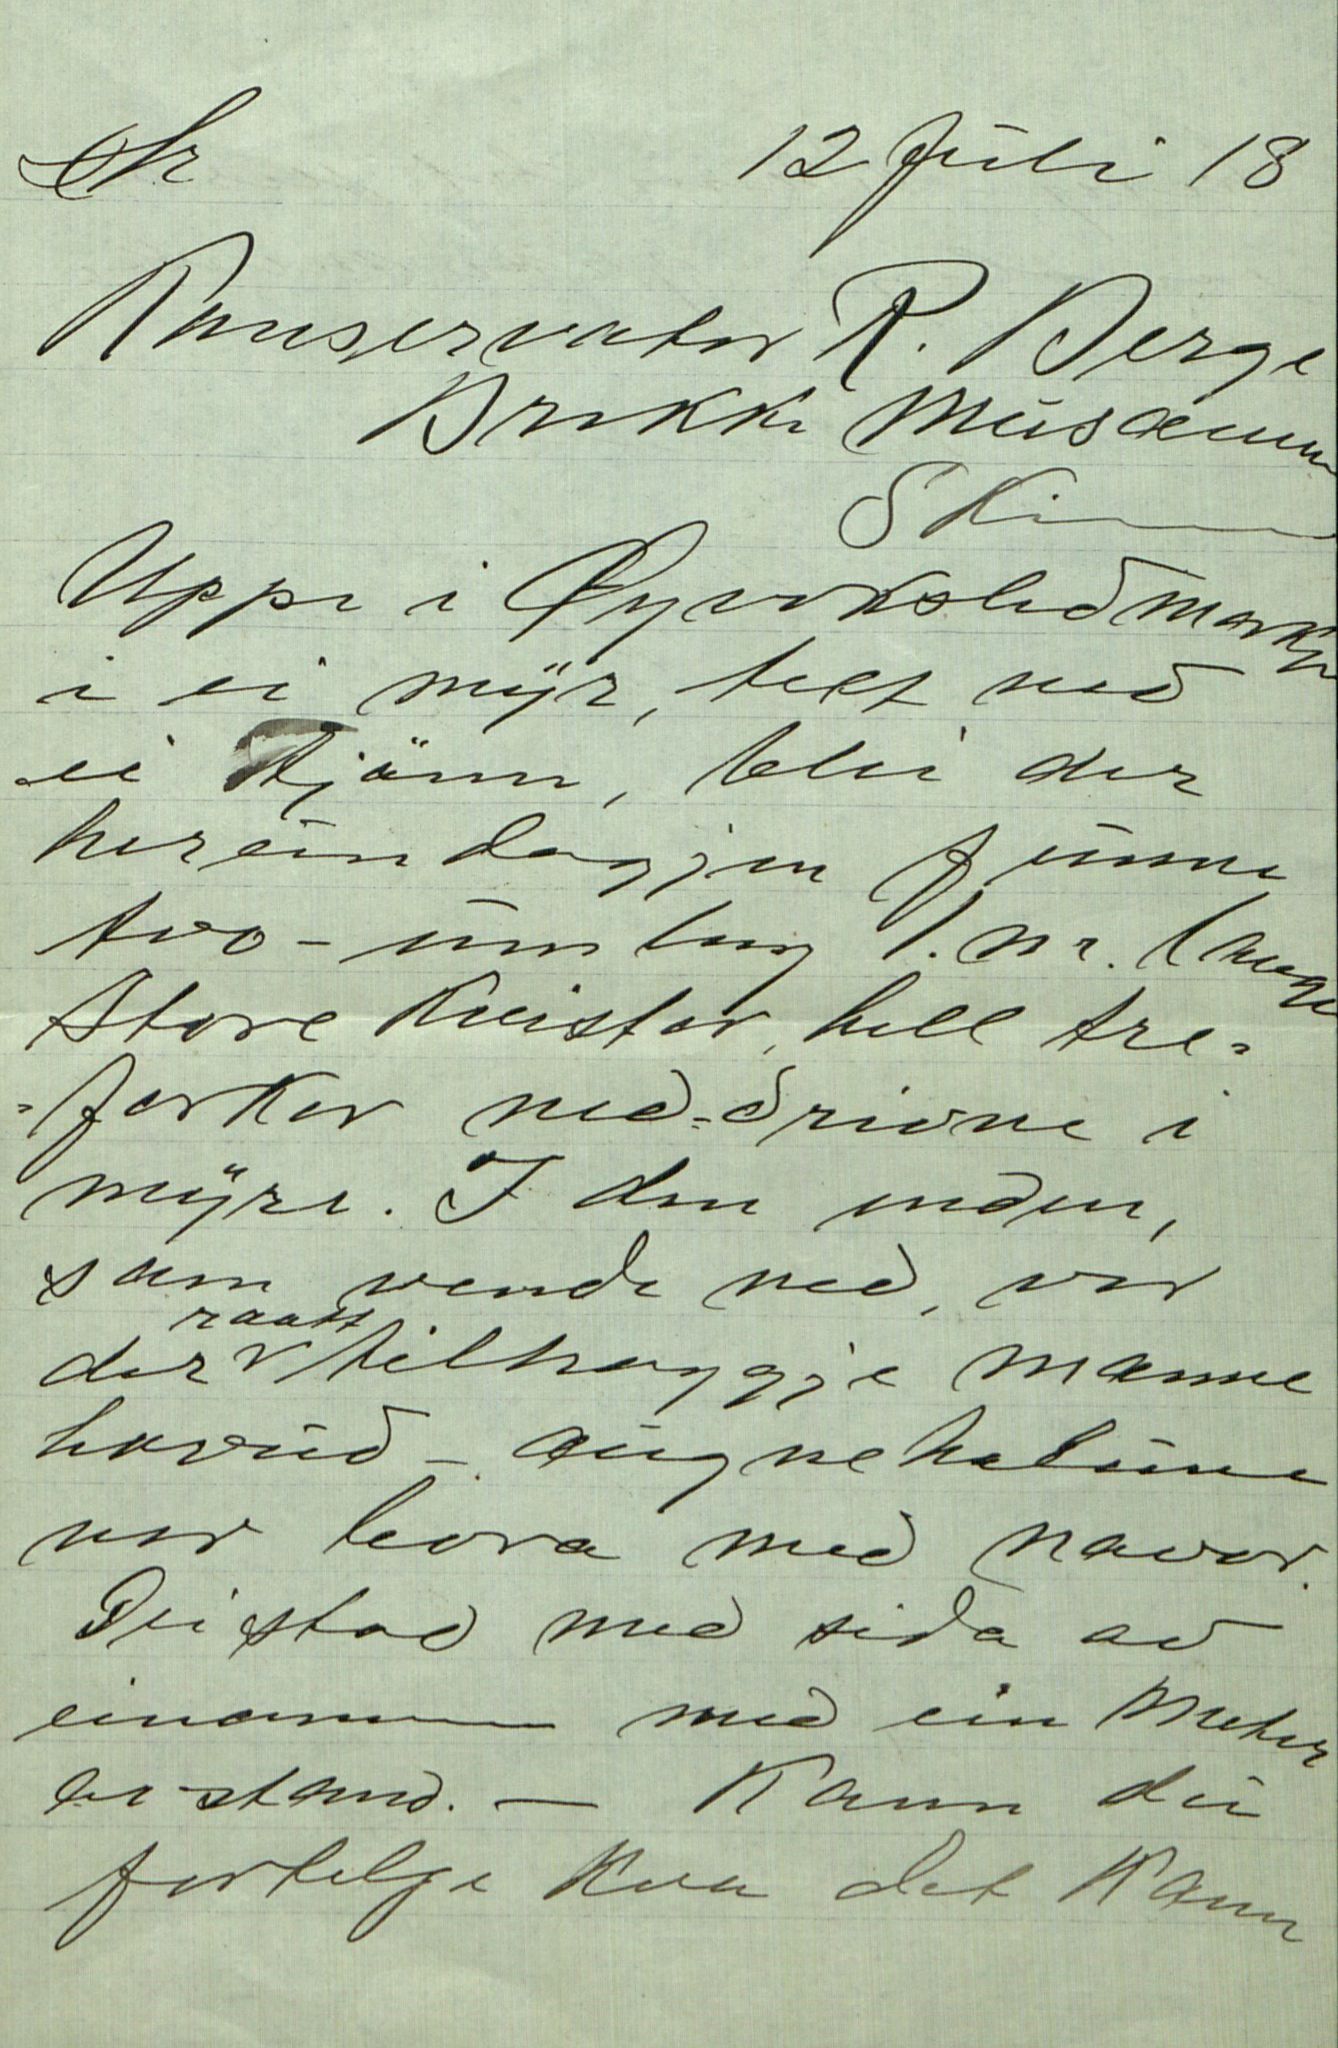 Hr 12 Juli 18
Konservator R. Berge
Brekke Musæum
Skien
Uppe i Øyvoksliðmarkje
i ei myr, tett veð
ei tjönn, blei der
hereindagjen funne
tvo - umlag 1. m. lange
store kvister, hell tre-
-forkor ned-drivne i
myre. I den enden,
sam vende ned, vor
der raatt tilhoggje manne
hovud - augneholune
vor bora med navor.
Dei stod med sida av
einannen med ein Meter
avstand. — Kann du
fortelje kva det kann